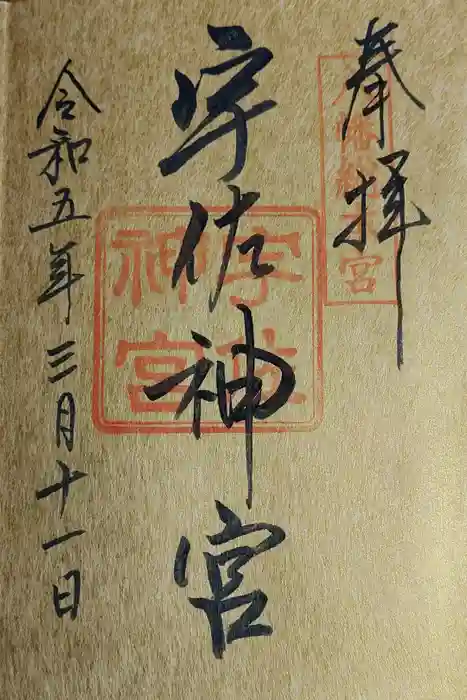 奉拝
八幡総本宮
宇佐神宮
宇佐神宮
令和五年三月十一日